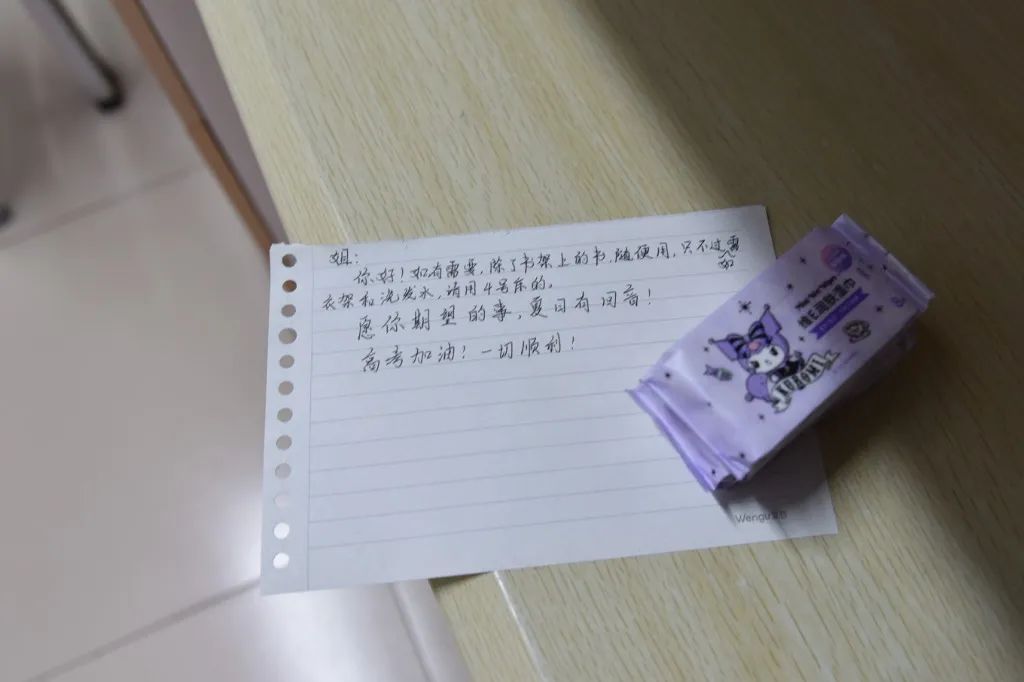 姐：
你好！如有需要，除了书架上的书，随便用，只不过如需
衣架和洗发水，请用4号床的。
愿你期望的事，夏日有回音！
高考加油！一切顺利！
维E润肤湿巾
KUROMI
Wengu